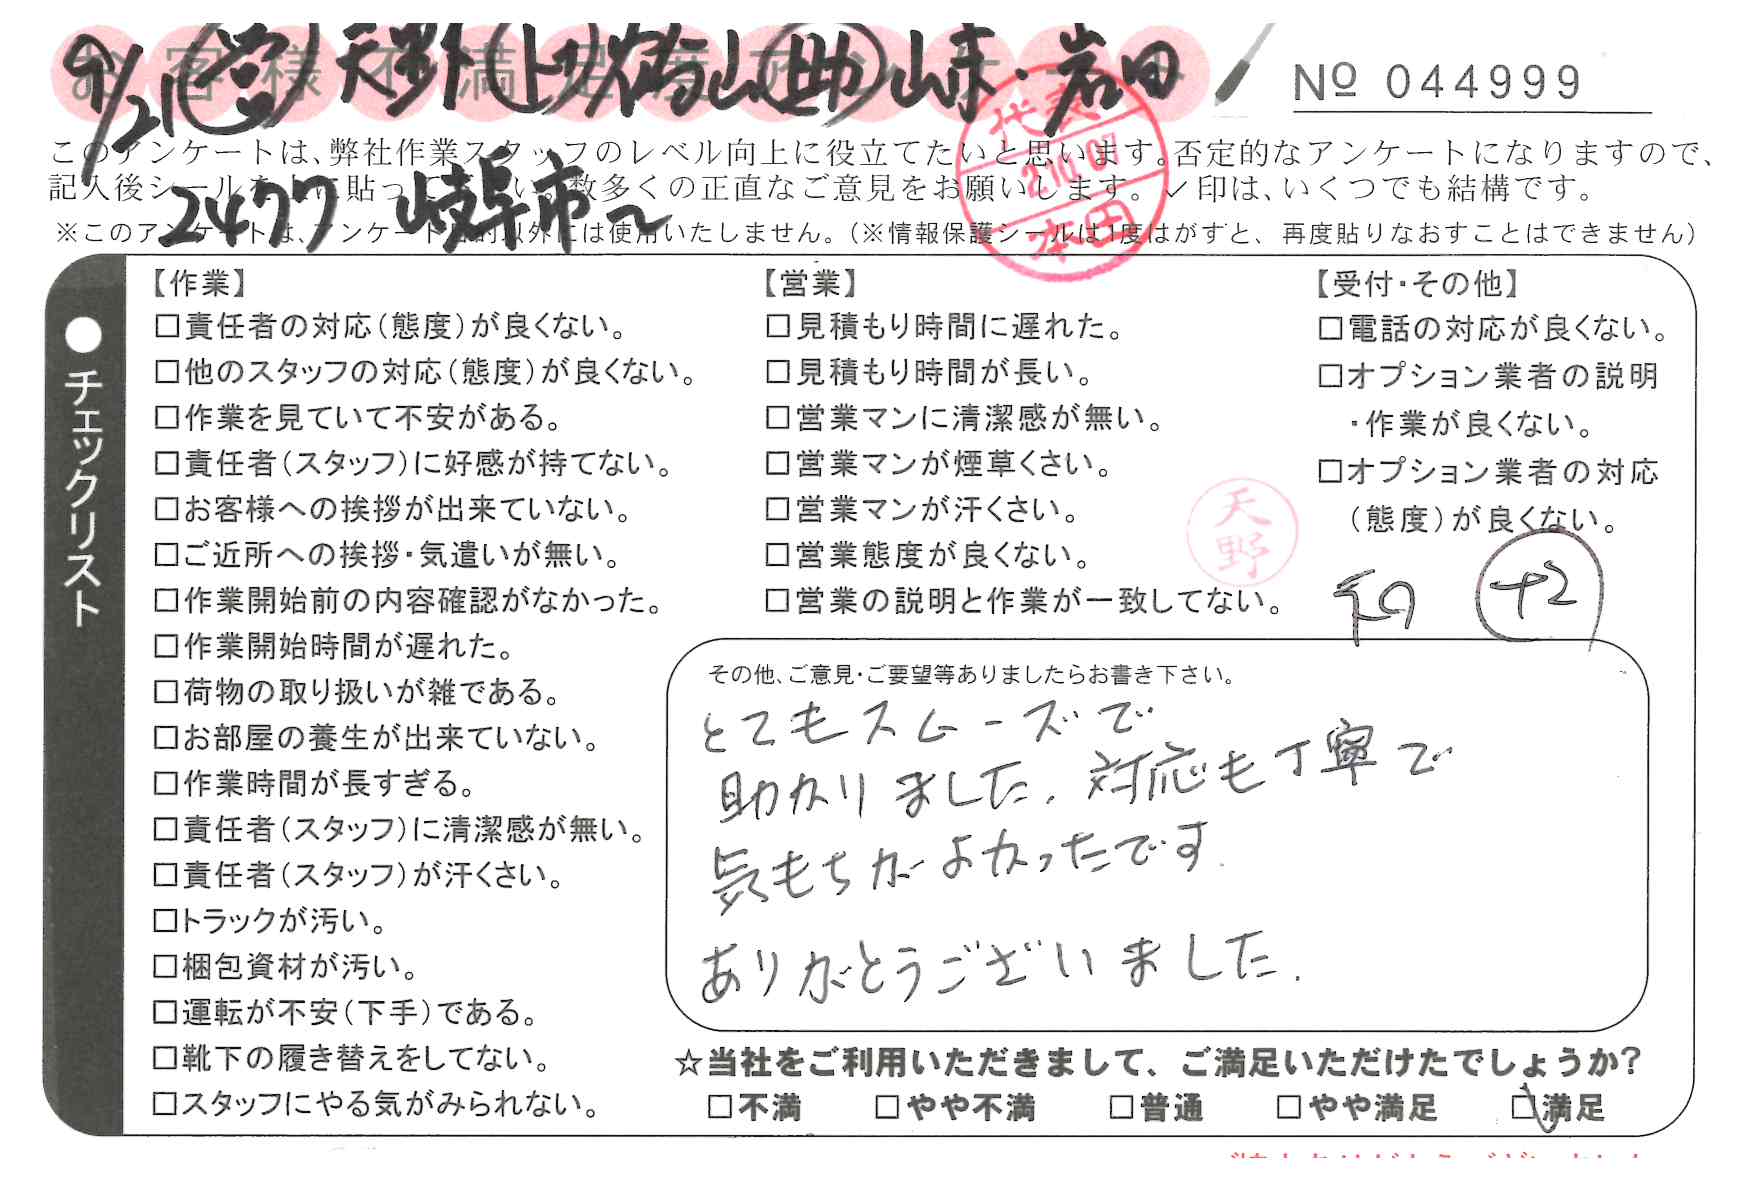 お客様不満足度アンケート
9/21(営)天野(上)鶴山(助)山本・岩田
№ 044999
2477 岐阜市〜
代表
21.10.07
本田
このアンケートは、弊社作業スタッフのレベル向上に役立てたいと思います。否定的なアンケートになりますので、
記入後シールを上に貼ってください。数多くの正直なご意見をお願いします。✓印は、いくつでも結構です。
※このアンケートは、アンケート目的以外には使用いたしません。（※情報保護シールは1度はがすと、再度貼りなおすことはできません）
●チェックリスト
【作業】
□責任者の対応（態度）が良くない。
□他のスタッフの対応（態度）が良くない。
□作業を見ていて不安がある。
□責任者（スタッフ）に好感が持てない。
□お客様への挨拶が出来ていない。
□ご近所への挨拶・気遣いが無い。
□作業開始前の内容確認がなかった。
□作業開始時間が遅れた。
□荷物の取り扱いが雑である。
□お部屋の養生が出来ていない。
□作業時間が長すぎる。
□責任者（スタッフ）に清潔感が無い。
□責任者（スタッフ）が汗くさい。
□トラックが汚い。
□梱包資材が汚い。
□運転が不安（下手）である。
□靴下の履き替えをしてない。
□スタッフにやる気がみられない。
【営業】
□見積もり時間に遅れた。
□見積もり時間が長い。
□営業マンに清潔感が無い。
□営業マンが煙草くさい。
□営業マンが汗くさい。
□営業態度が良くない。
□営業の説明と作業が一致してない。
天野
【受付・その他】
□電話の対応が良くない。
□オプション業者の説明
・作業が良くない。
□オプション業者の対応
（態度）が良くない。
和 +2
その他、ご意見・ご要望等ありましたらお書き下さい。
とてもスムーズで
助かりました。対応も丁寧で
気もちがよかったです。
ありがとうございました。
☆当社をご利用いただきまして、ご満足いただけたでしょうか?
□不満 □やや不満 □普通 □やや満足 ☑満足